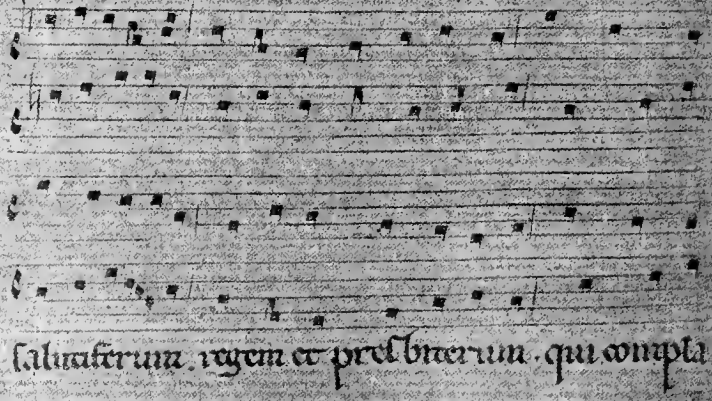 salutiferum. regem et presbiterum. qui compla